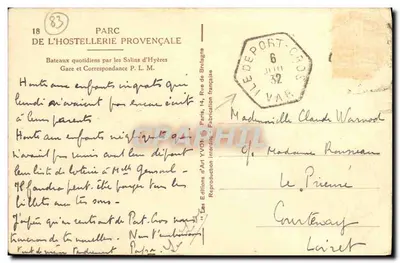 83
18 PARC
DE L'HOSTELLERIE PROVENÇALE
Bateaux quotidiens par les Salins d'Hyères
Gare et Correspondance P. L. M.
Honte aux enfants ingrats qui
lundi n'avaient pas encore écrit
à leurs parents
Honte aux enfants
n'avait pas remis avant leur départ
leur liste de loterie à Melle
Il faudra peut être payer tous les
billets sur tes sous.
J'espère qu'en rentrant de Port-Cros nous
trouverons de tes nouvelles. Nous t'embrassons
tendrement Papa
Les Editions d'Art YVON, Paris, 14, Rue de Bretagne
Reproduction interdite. Fabrication française
ILE DE PORT-CROS
6
32
VAR
Mademoiselle Claude Warnod
c/o Madame Rousseau
Le Prieuré
Courtenay
Loiret
CPAPHIL.COM